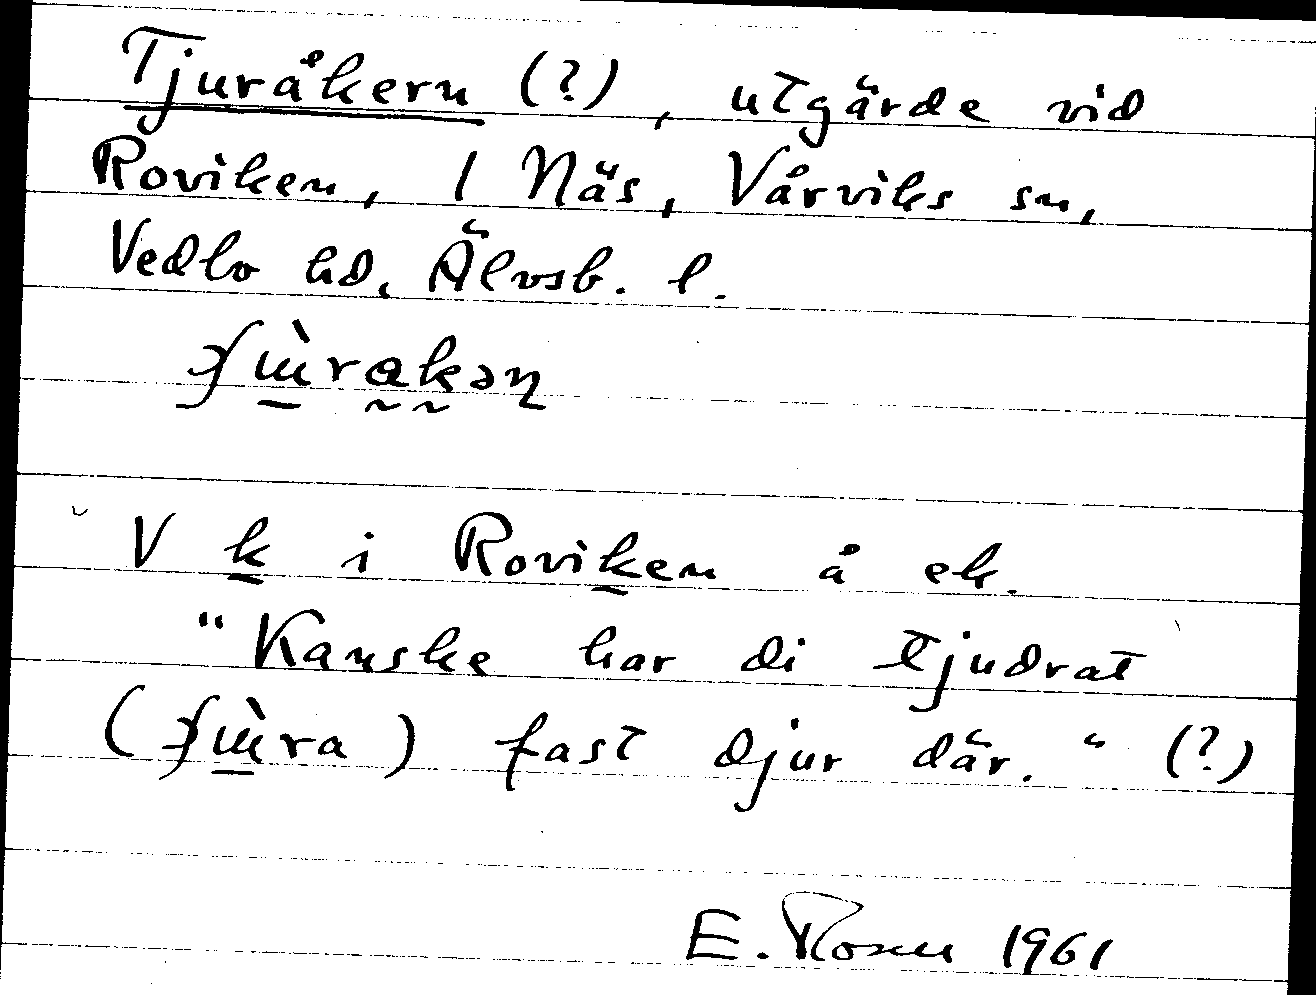 Tjuråkern (?), utgärde vid
Roviken, 1 Näs, Vårviks sn,
Vedbo hd, Älvsb. l.
V k i Roviken å ek.
"Kanske har di tjudrat
( ) fast djur där." (?)
E. Rosen 1961